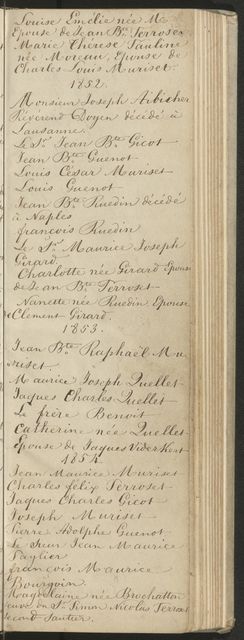 Louise Emelie née M
Epouse de Jean Bte Perroset
Marie Thérese Pauline
née Moreau, Epouse de
Charles Louis Muriset.
1852.
Monsieur Joseph Aibicher
Réverend Doyen décédé à
Lausanne.
Le Sr. Jean Bte Gicot
Jean Bte Guenot
Louis César Muriset
Louis Guenot
Jean Bte Ruedin décédé
à Naples
François Ruedin
Le Sr. Maurice Joseph
Girard.
Charlotte née Girard Epouse
de Jean Bte Perroset
Nanette née Ruedin Epouse
de Clement Girard.
1853.
Jean Bte Raphaël Mu
riset.
Maurice Joseph Quellet
Jaques Charles Quellet
Le frère Benoit
Catherine née Quellet
Epouse de Jaques Viderkert
1854.
Jean Maurice Muriset
Charles felix Perroset
Jaques Charles Gicot
Joseph Muriset
Pierre Adolphe Guenot
Le Sieur Jean Maurice
François Maurice
Bourgoin
Magdelaine née Brochatton
veuve du Sr. Simon Nicolas Perroset
second Sautier.